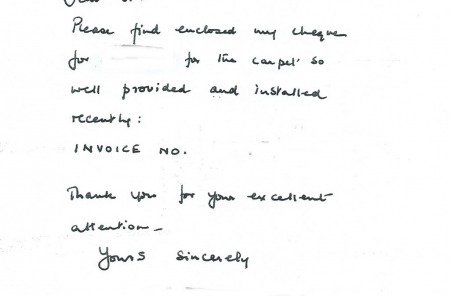 Please find enclosed my cheque
for for the carpet so
well provided and installed
recently:
INVOICE NO.
Thank you for your excellent
attention_
Yours sincerely